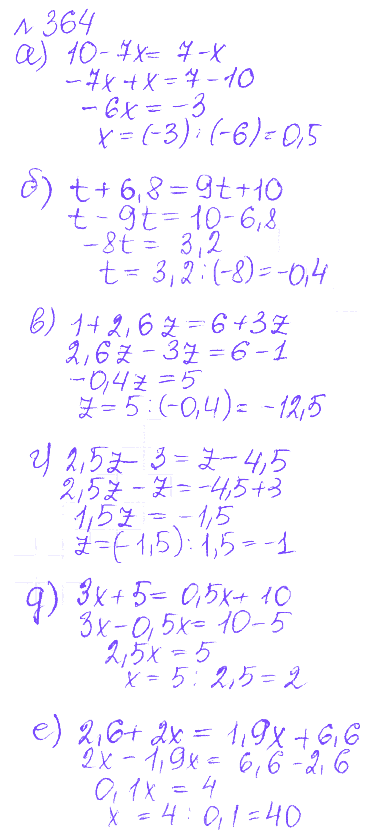 № 364
а) 10 - 7x = 7 - x
-7x + x = 7 - 10
-6x = -3
x = (-3) : (-6) = 0,5
б) t + 6,8 = 9t + 10
t - 9t = 10 - 6,8
-8t = 3,2
t = 3,2 : (-8) = -0,4
в) 1 + 2,6z = 6 + 3z
2,6z - 3z = 6 - 1
-0,4z = 5
z = 5 : (-0,4) = -12,5
г) 2,5z - 3 = z - 4,5
2,5z - z = -4,5 + 3
1,5z = -1,5
z = (-1,5) : 1,5 = -1
д) 3x + 5 = 0,5x + 10
3x - 0,5x = 10 - 5
2,5x = 5
x = 5 : 2,5 = 2
е) 2,6 + 2x = 1,9x + 6,6
2x - 1,9x = 6,6 - 2,6
0,1x = 4
x = 4 : 0,1 = 40